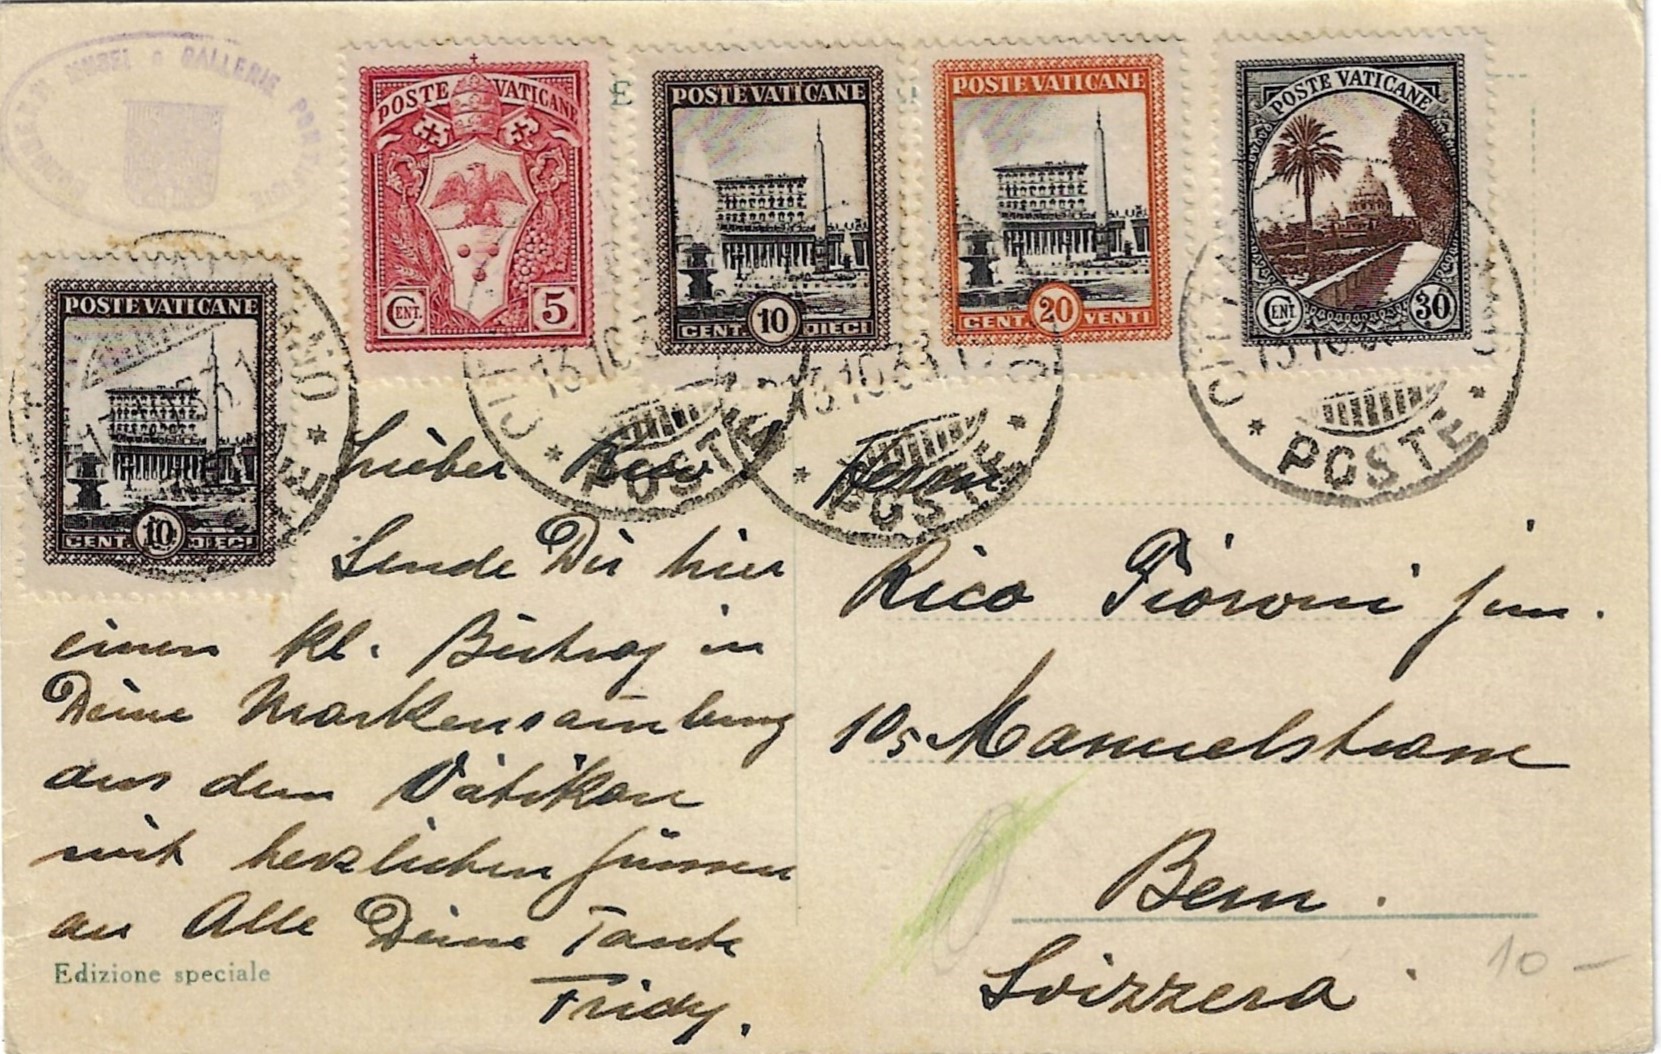 MUSEI e GALLERIE PONTIFICIE
POSTE VATICANE
CENT. 5
POSTE VATICANE
CENT. 10 DIECI
POSTE VATICANE
CENT. 20 VENTI
POSTE VATICANE
CENT. 30
POSTE VATICANE
CENT. 10 DIECI
13.10.33
POSTE
13.10.33
POSTE
POSTE
Lieber Rico!
Sende Dir hier
einen kl. Beitrag in
Deine Markensammlung
aus dem Vatikan
mit herzlichen Grüssen
an Alle Deine Tante
Fridy.
Edizione speciale
Herrn
Rico Fioroni jun.
105 Manuelstrasse
Bern.
Svizzera
10 –